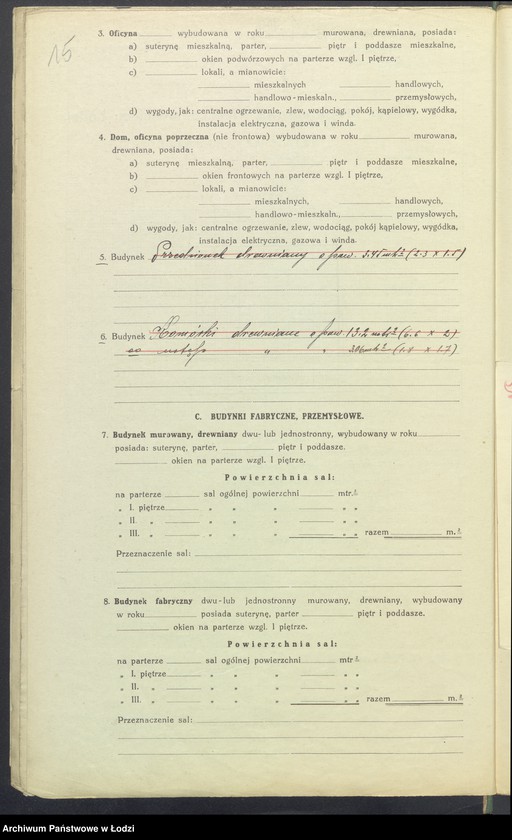 15
3. Oficyna ______ wybudowana w roku ______ murowana, drewniana, posiada:
a) suterynę mieszkalną, parter, ______ piętr i poddasze mieszkalne,
b) ______ okien podwórzowych na parterze wzgl. I piętrze,
c) ______ lokali, a mianowicie:
______ mieszkalnych ______ handlowych,
______ handlowo-mieskaln., ______ przemysłowych,
d) wygody, jak: centralne ogrzewanie, zlew, wodociąg, pokój, kąpielowy, wygódka,
instalacja elektryczna, gazowa i winda.
4. Dom, oficyna poprzeczna (nie frontowa) wybudowana w roku ______ murowana,
drewniana, posiada:
a) suterynę mieszkalną, parter, ______ piętr i poddasze mieszkalne,
b) ______ okien frontowych na parterze wzgl. I piętrze,
c) ______ lokali, a mianowicie:
______ mieszkalnych, ______ handlowych,
______ handlowo-mieszkaln., ______ przemysłowych,
d) wygody, jak: centralne ogrzewanie, zlew, wodociąg, pokój kąpielowy, wygódka,
instalacja elektryczna, gazowa i winda.
5. Budynek Przedsionek drewniany o pow. 3.45 mtr² (2.3 x 1.5)
6. Budynek Komórki drewniane o pow. 13.2 mtr² (6.6 x 2)
" " 306 mtr² (1.8 x 1.7)
C. BUDYNKI FABRYCZNE, PRZEMYSŁOWE.
7. Budynek murowany, drewniany dwu- lub jednostronny, wybudowany w roku ______
posiada: suterynę, parter, ______ piętr i poddasze.
______ okien na parterze wzgl. I piętrze.
Powierzchnia sal:
na parterze ______ sal ogólnej powierzchni ______ mtr.²
„ I. piętrze ______ „ „ „ ______ „ „
„ II. „ ______ „ „ „ ______ „ „
„ III. „ ______ „ „ „ ______ „ „ razem ______ m.²
Przeznaczenie sal: ______
8. Budynek fabryczny dwu-lub jednostronny murowany, drewniany, wybudowany
w roku ______ posiada suterynę, parter ______ piętr i poddasze.
______ okien na parterze wzgl. I piętrze.
Powierzchnia sal:
na parterze ______ sal ogólnej powierzchni ______ mtr.²
„ I. piętrze ______ „ „ „ ______ „ „
„ II. „ ______ „ „ „ ______ „ „
„ III. „ ______ „ „ „ ______ „ „ razem ______ m.²
Przeznaczenie sal: ______
Archiwum Państwowe w Łodzi